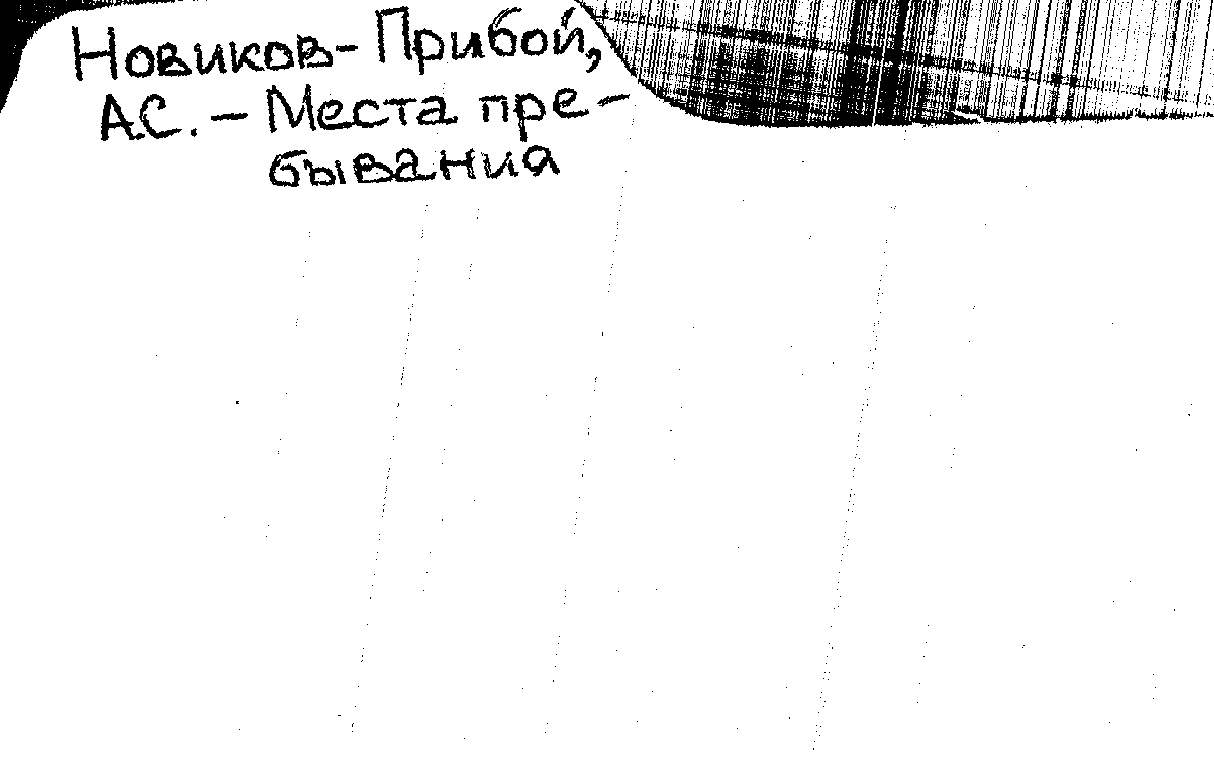 Новиков-Прибой,
А.С. - Места пре-
бывания